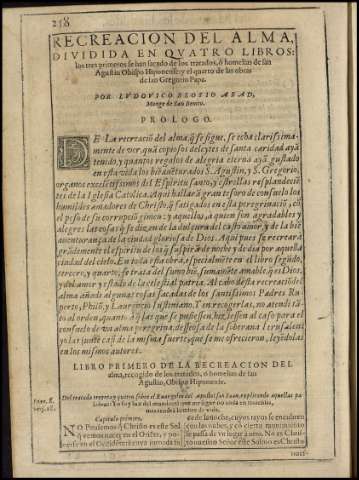 218
RECREACION DEL ALMA,
DIVIDIDA EN QVATRO LIBROS:
los tres primeros se han sacado de los tratados, ò homelias de san
Agustin Obispo Hiponense: y el quarto de las obras
de san Gregorio Papa.
POR LVDOVICO BLOSIO ABAD,
Monge de San Benito.
PROLOGO.
DE La recreaciõ del alma, q̃ se sigue, se echa clarissima-
mente de ver, quã copiosos deleytes de santa caridad ayã
tenido, y quantos regalos de alegria eterna ayã gustado
en esta vida los bienauẽturados S. Agustin, y S. Gregorio,
organos excelentissimos del Espiritu santo, y estrellas resplandeciẽ
tes de la Iglesia Catolica. Aqui hallarã gran tesoro de consuelo los
humildes amadores de Christo, q̃ fatigados en esta peregrinaciõ, cõ
el peso de su corrupciõ gimen: y aquellos, a quien son agradables y
alegres las cosas q̃ se dizen de la dulçura del casto amor, y de la bie
auenturança de la ciudad gloriosa de Dios. Aqui pues se recrearà
grãdemente el espiritu de los q̃ suspirã de noche y de dia por aquella
ciudad del cielo. En toda esta obra, especialmẽte en el libro segũdo,
tercero, y quarto, se trata del sumo biẽ, sumamẽte amable, q̃ es Dios,
y del amor y estado de la celestial patria. Al cabo desta recreaciõ del
alma añado algunas cosas sacadas de los santissimos Padres Ru
perto, Philõ, y Laurencio Iustiniano. Y en recogerlas, no atendi tã
to al orden, quanto a q̃ las que se pusiessen, hiziessen al caso para el
consuelo de vn alma peregrina, desseosa de la soberana Ierusalen:
y o las juntè casi de la misma suerte, que se me ofrecieron, leyẽdolas
en los mismos autores.
LIBRO PRIMERO DE LA RECREACION DEL
alma, recogido de los tratados, ò homelias de san
Agustin, Obispo Hiponense.
Del tratado treynta y quatro sobre el Euangelio del Apostol san Iuan, explicando aquellas pa
labras: Yo soy luz del mundo: el que me sigue no anda en tinieblas,
mas tendrà lumbre de vida.
Ioan. 8.
Capitulo primero.
NO Pensemos q̃ Christo es este Sol
q̃ vemos nacer en el Oriẽte, y po-
nerse en el Occidẽte
cuyos rayos se encubren
con las nubes, y con cierto mouimiento
se passa de vn lugar à otro. No es Chris
to Señor este Sol: no es Christo